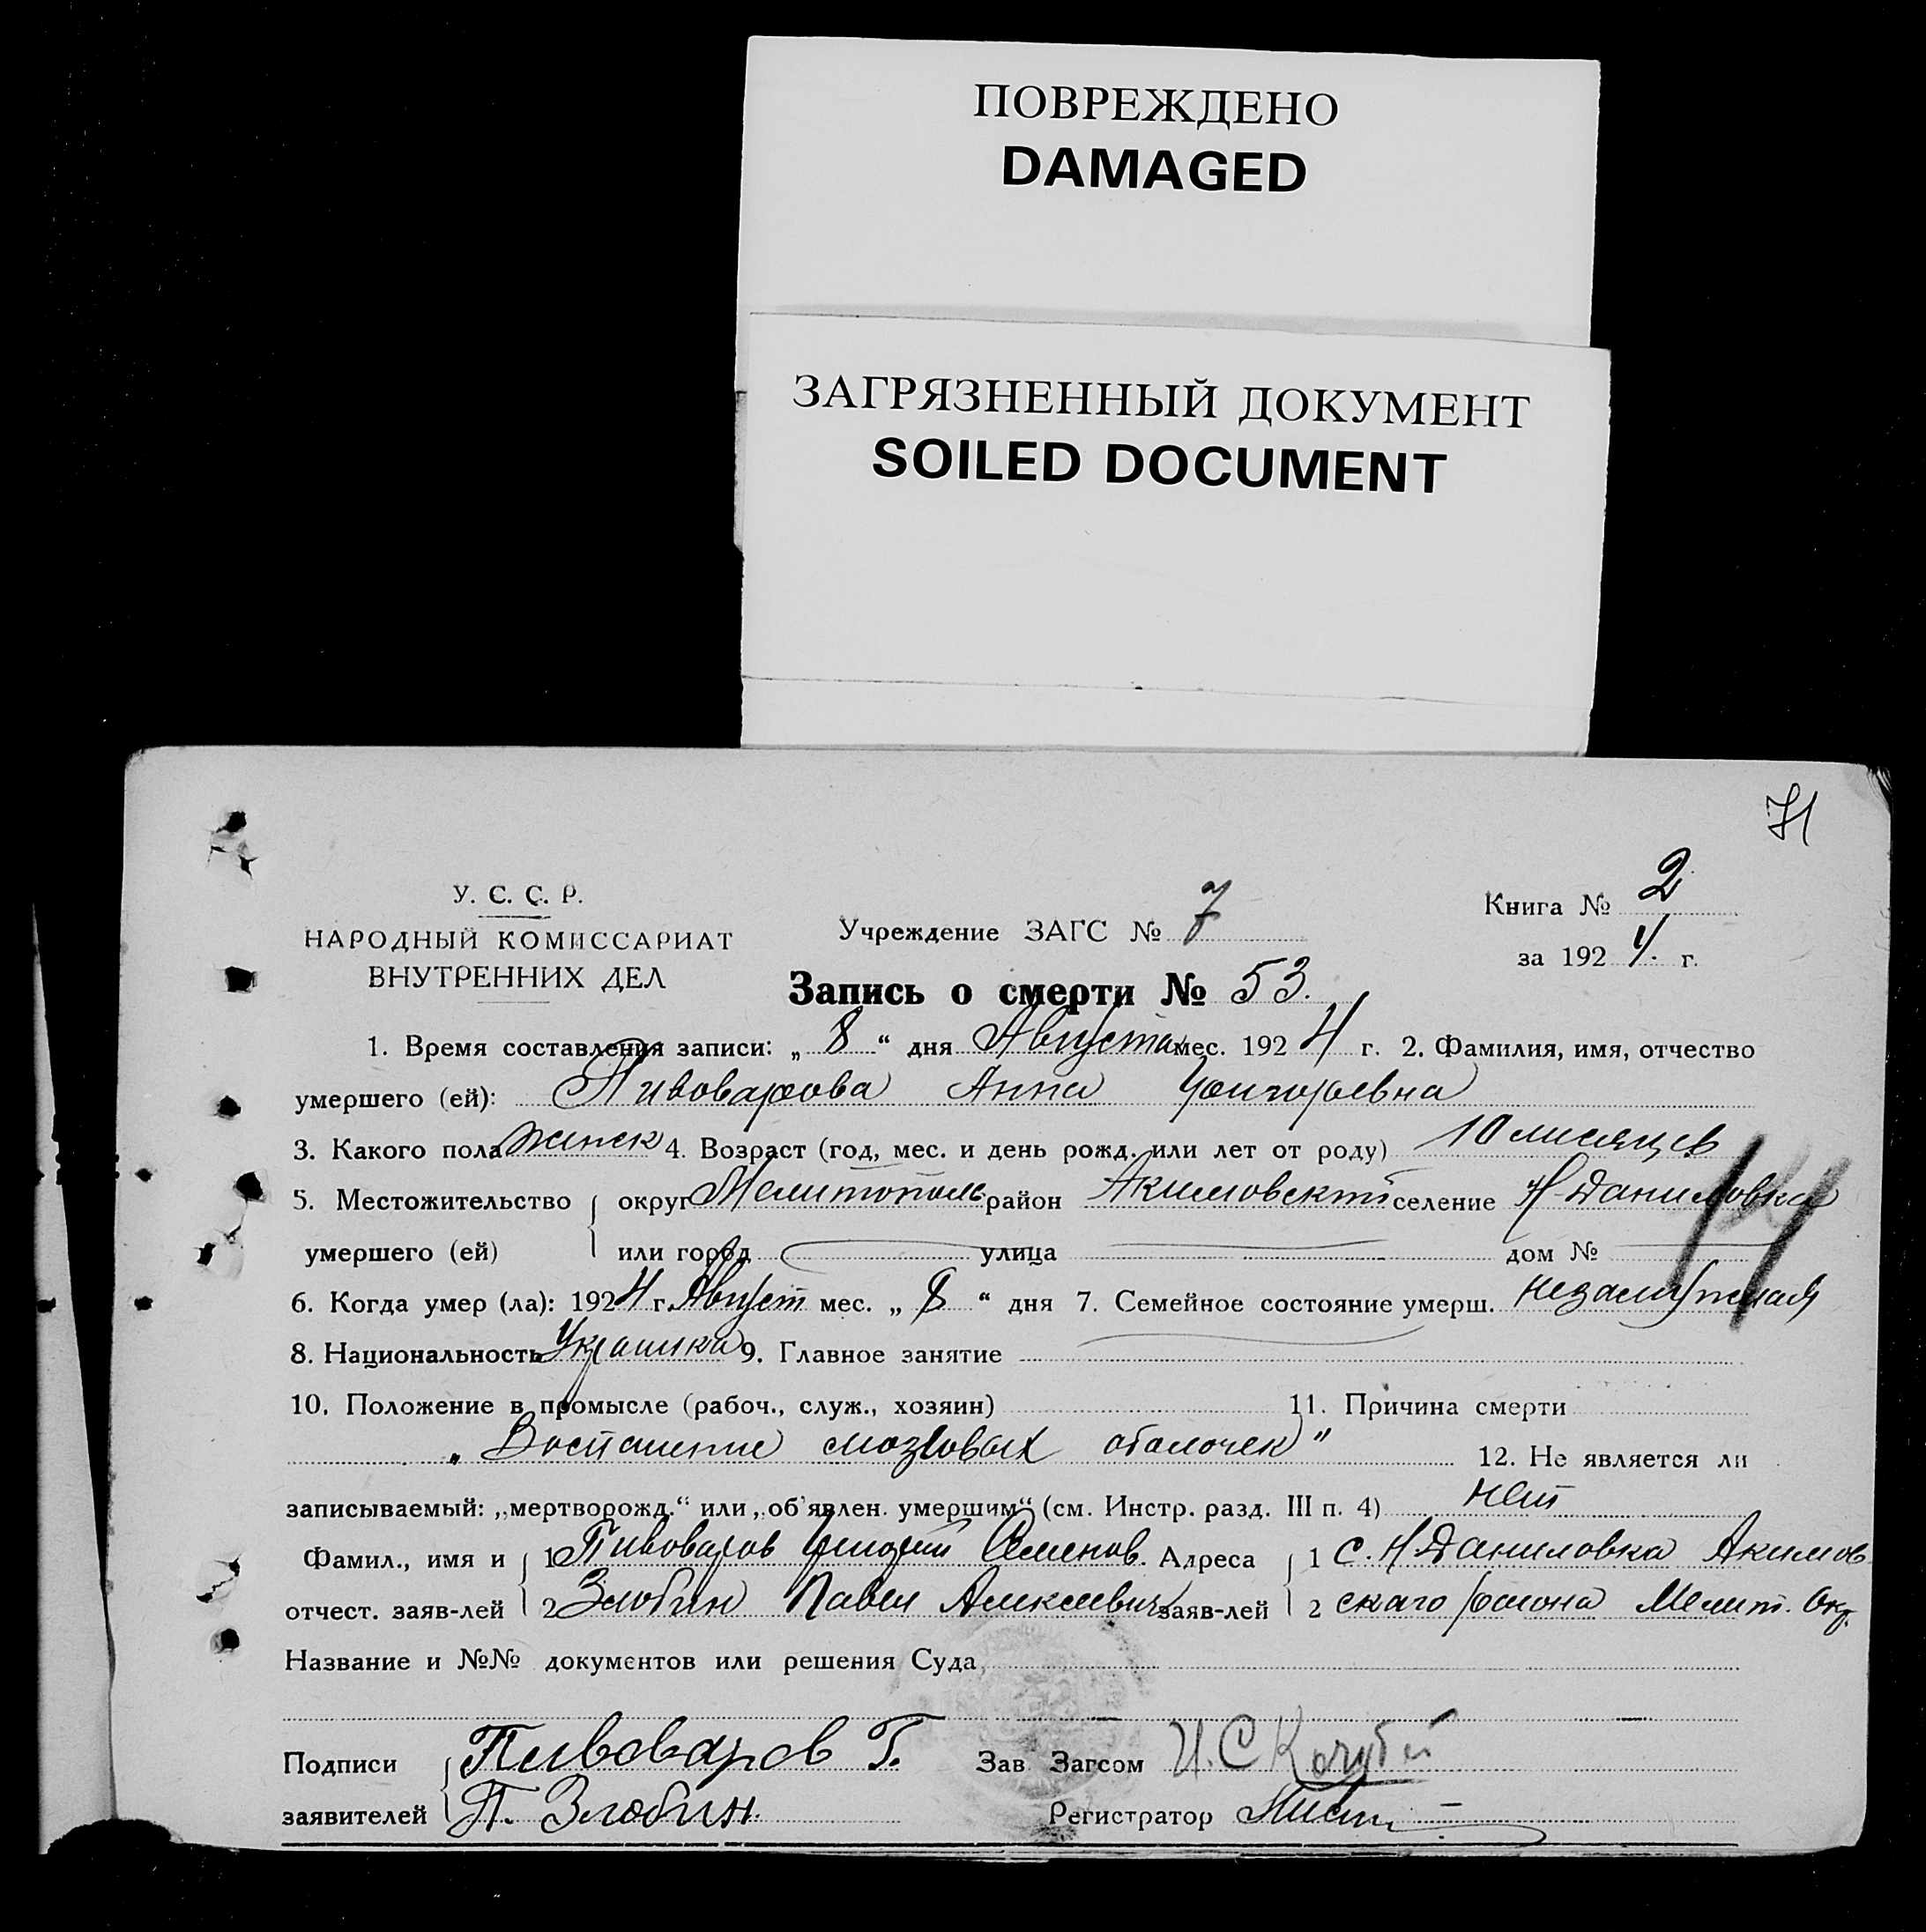 ПОВРЕЖДЕНО
DAMAGED
ЗАГРЯЗНЕННЫЙ ДОКУМЕНТ
SOILED DOCUMENT
71
У. С. С. Р.
НАРОДНЫЙ КОМИССАРИАТ
ВНУТРЕННИХ ДЕЛ
Учреждение ЗАГС № 7
Книга № 2
за 1924. г.
Запись о смерти № 53.
1. Время составления записи: „ 8 “ дня Августа мес. 1924 г. 2. Фамилия, имя, отчество
умершего (ей): Пивоварова Анна Григорьевна
3. Какого пола женск 4. Возраст (год, мес. и день рожд. или лет от роду) 10 месяцев
5. Местожительство округ Мелитополь район Акимовский селение Н-Даниловка
умершего (ей) или город улица дом №
6. Когда умер (ла): 1924 г. Август мес. „ 8 “ дня 7. Семейное состояние умерш. незамужная
8. Национальность Украинка 9. Главное занятие
10. Положение в промысле (рабоч., служ., хозяин) 11. Причина смерти
„Воспаление мозговых оболочек" 12. Не является ли
записываемый: „мертворожд.“ или „об'явлен. умершим“ (см. Инстр. разд. III п. 4) нет
Фамил., имя и 1 Пивоваров Григорий Семенов. Адреса 1 с. Н Даниловка Акимов
отчест. заяв-лей 2 Злобин Павел Алексеевич заяв-лей 2 скаго района Мелит. Окр.
Название и №№ документов или решения Суда
Подписи Пивоваров Г. Зав Загсом И. С Кочубей
заявителей П. Злобин. Регистратор